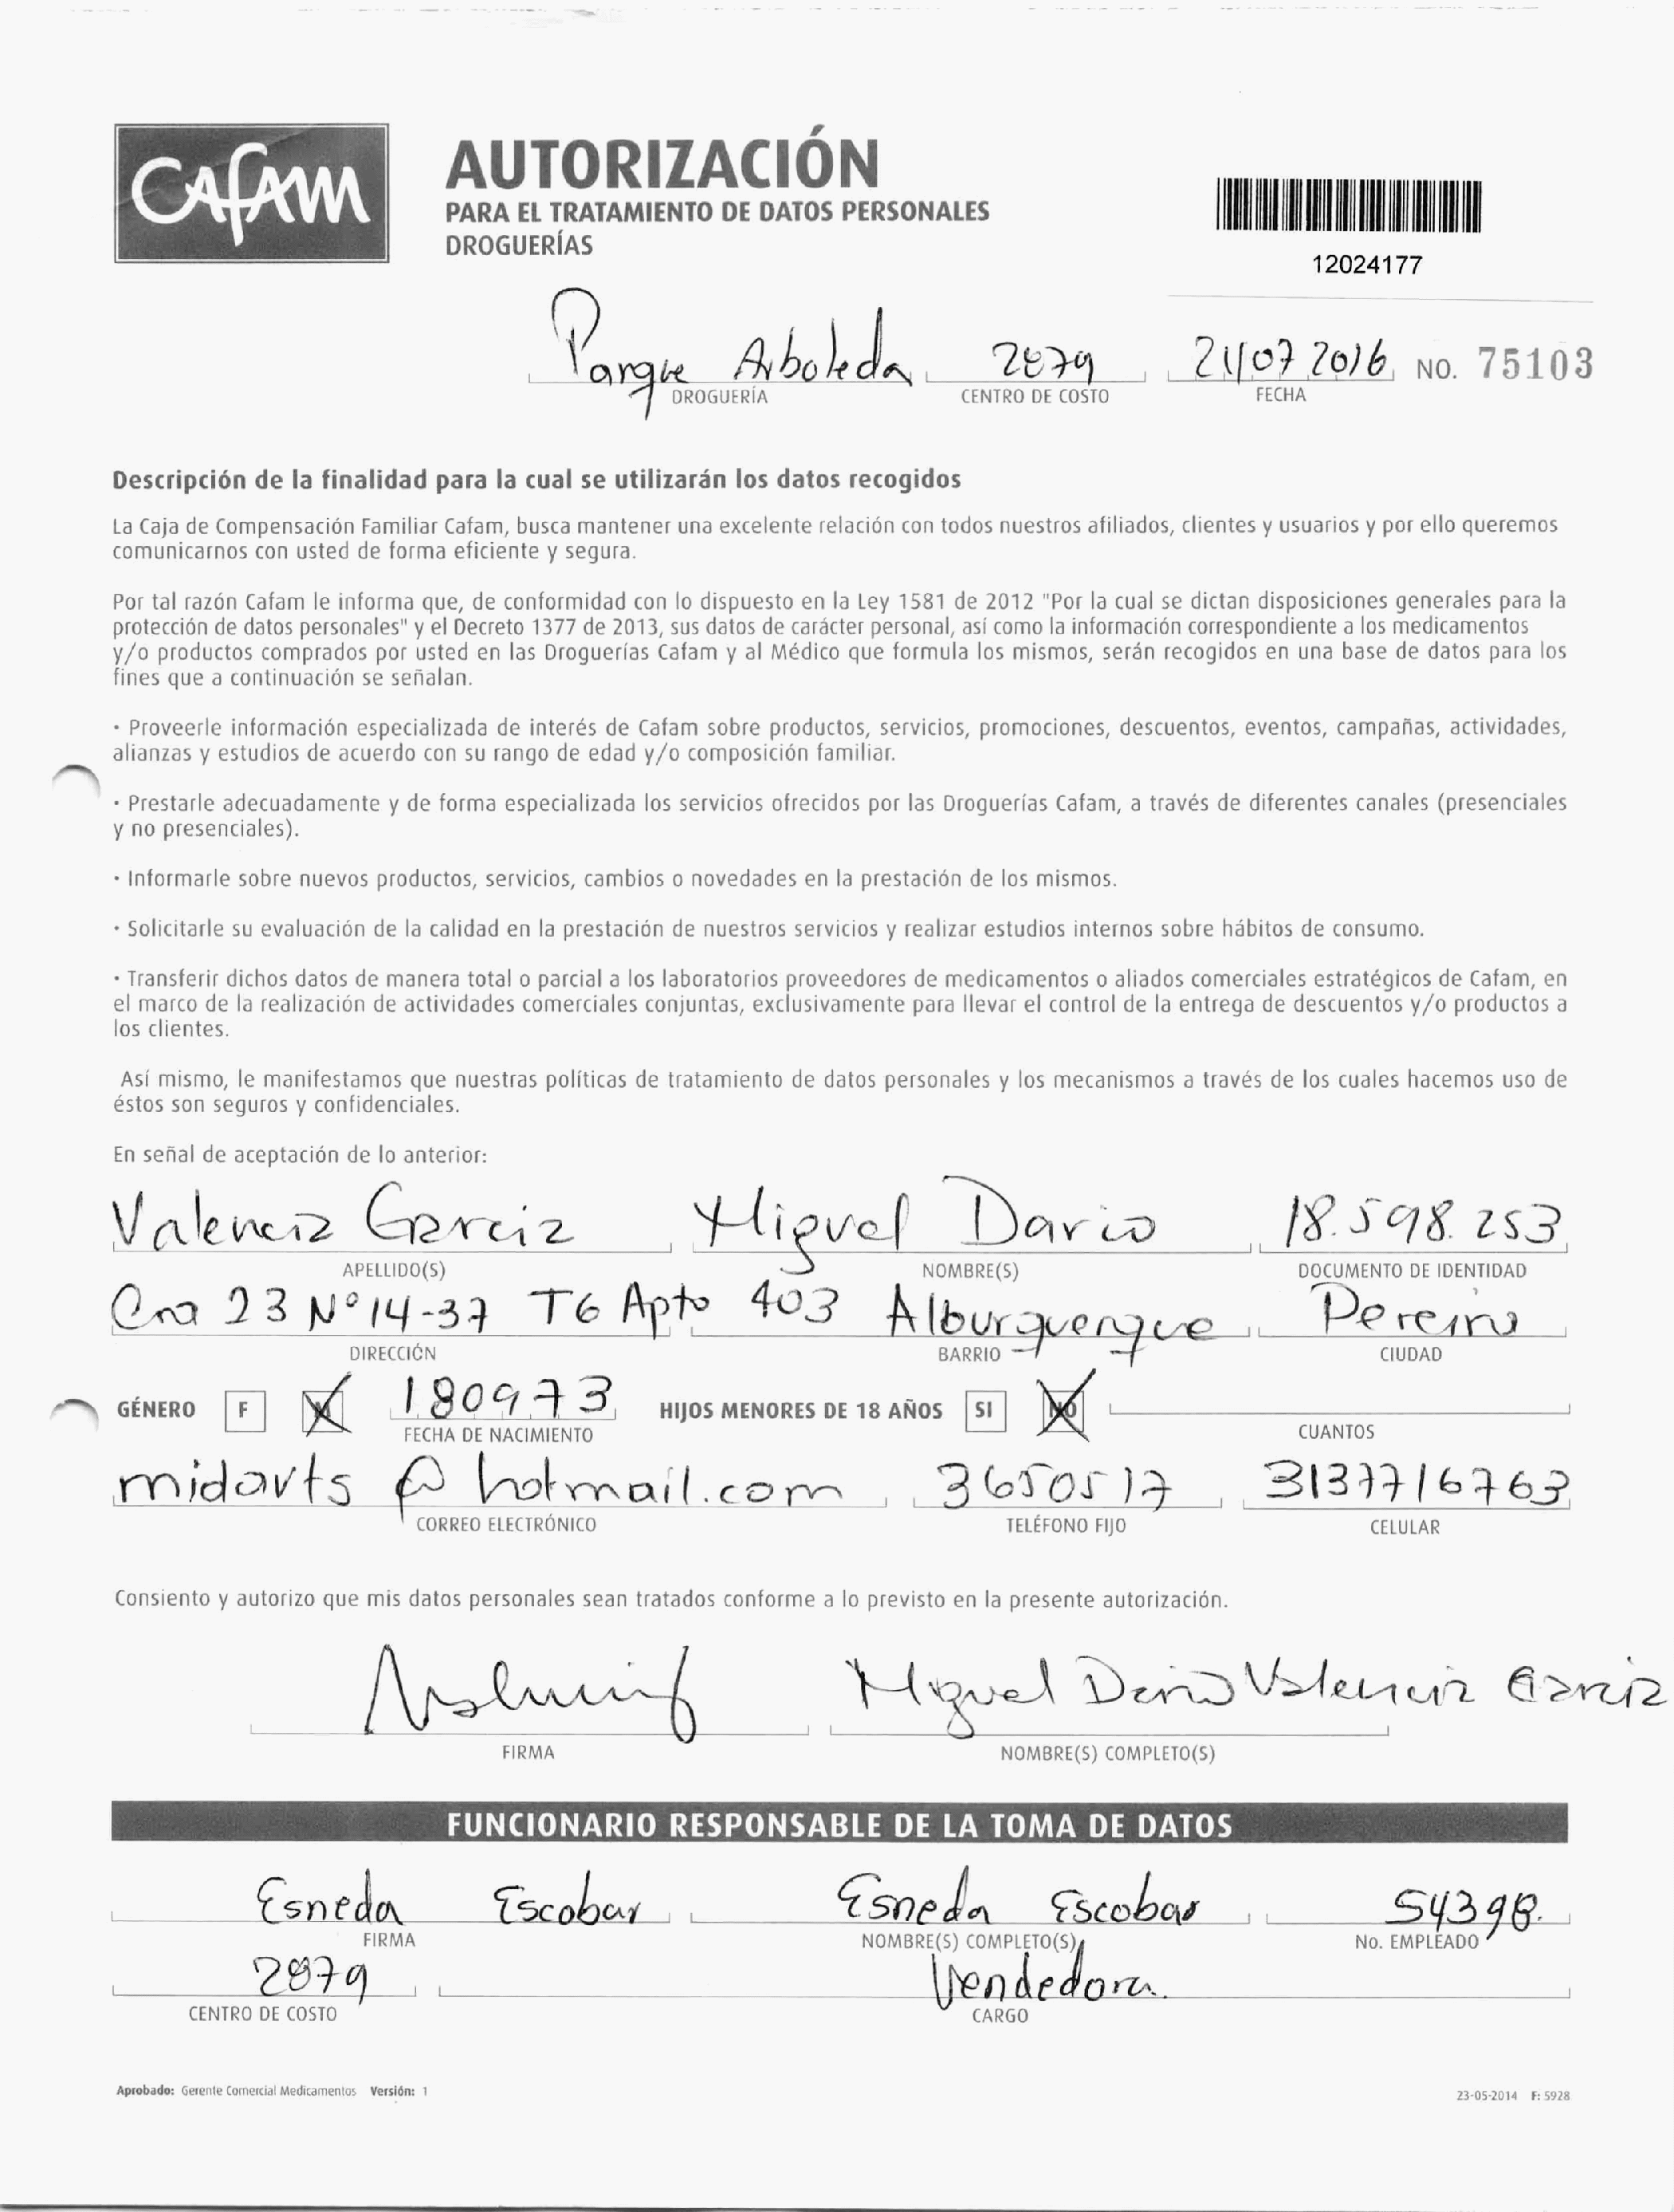 CAFAM
AUTORIZACIÓN
PARA EL TRATAMIENTO DE DATOS PERSONALES
DROGUERÍAS
12024177
Parque Arboleda 2879 21/07 2016 NO. 75103
DROGUERÍA CENTRO DE COSTO FECHA
Descripción de la finalidad para la cual se utilizarán los datos recogidos
La Caja de Compensación Familiar Cafam, busca mantener una excelente relación con todos nuestros afiliados, clientes y usuarios y por ello queremos
comunicarnos con usted de forma eficiente y segura.
Por tal razón Cafam le informa que, de conformidad con lo dispuesto en la Ley 1581 de 2012 "Por la cual se dictan disposiciones generales para la
protección de datos personales" y el Decreto 1377 de 2013, sus datos de carácter personal, así como la información correspondiente a los medicamentos
y/o productos comprados por usted en las Droguerías Cafam y al Médico que formula los mismos, serán recogidos en una base de datos para los
fines que a continuación se señalan.
· Proveerle información especializada de interés de Cafam sobre productos, servicios, promociones, descuentos, eventos, campañas, actividades,
alianzas y estudios de acuerdo con su rango de edad y/o composición familiar.
· Prestarle adecuadamente y de forma especializada los servicios ofrecidos por las Droguerías Cafam, a través de diferentes canales (presenciales
y no presenciales).
· Informarle sobre nuevos productos, servicios, cambios o novedades en la prestación de los mismos.
· Solicitarle su evaluación de la calidad en la prestación de nuestros servicios y realizar estudios internos sobre hábitos de consumo.
· Transferir dichos datos de manera total o parcial a los laboratorios proveedores de medicamentos o aliados comerciales estratégicos de Cafam, en
el marco de la realización de actividades comerciales conjuntas, exclusivamente para llevar el control de la entrega de descuentos y/o productos a
los clientes.
Así mismo, le manifestamos que nuestras políticas de tratamiento de datos personales y los mecanismos a través de los cuales hacemos uso de
éstos son seguros y confidenciales.
En señal de aceptación de lo anterior:
Valencia Garcia Miguel Dario 18.598.253
APELLIDO(S) NOMBRE(S) DOCUMENTO DE IDENTIDAD
Cra 23 Nº 14-37 T6 Apto 403 Alburquerque Pereira
DIRECCIÓN BARRIO CIUDAD
GÉNERO F M 180973 HIJOS MENORES DE 18 AÑOS SI NO
FECHA DE NACIMIENTO CUANTOS
midavts @ hotmail.com 3650517 3137716763
CORREO ELECTRÓNICO TELÉFONO FIJO CELULAR
Consiento y autorizo que mis datos personales sean tratados conforme a lo previsto en la presente autorización.
Miguel Dario Valencia Garcia
FIRMA NOMBRE(S) COMPLETO(S)
FUNCIONARIO RESPONSABLE DE LA TOMA DE DATOS
Esneda Escobar Esneda Escobar 54398.
FIRMA NOMBRE(S) COMPLETO(S) No. EMPLEADO
2879 Vendedora.
CENTRO DE COSTO CARGO
Aprobado: Gerente Comercial Medicamentos Versión: 1 23-05-2014 F: 5928